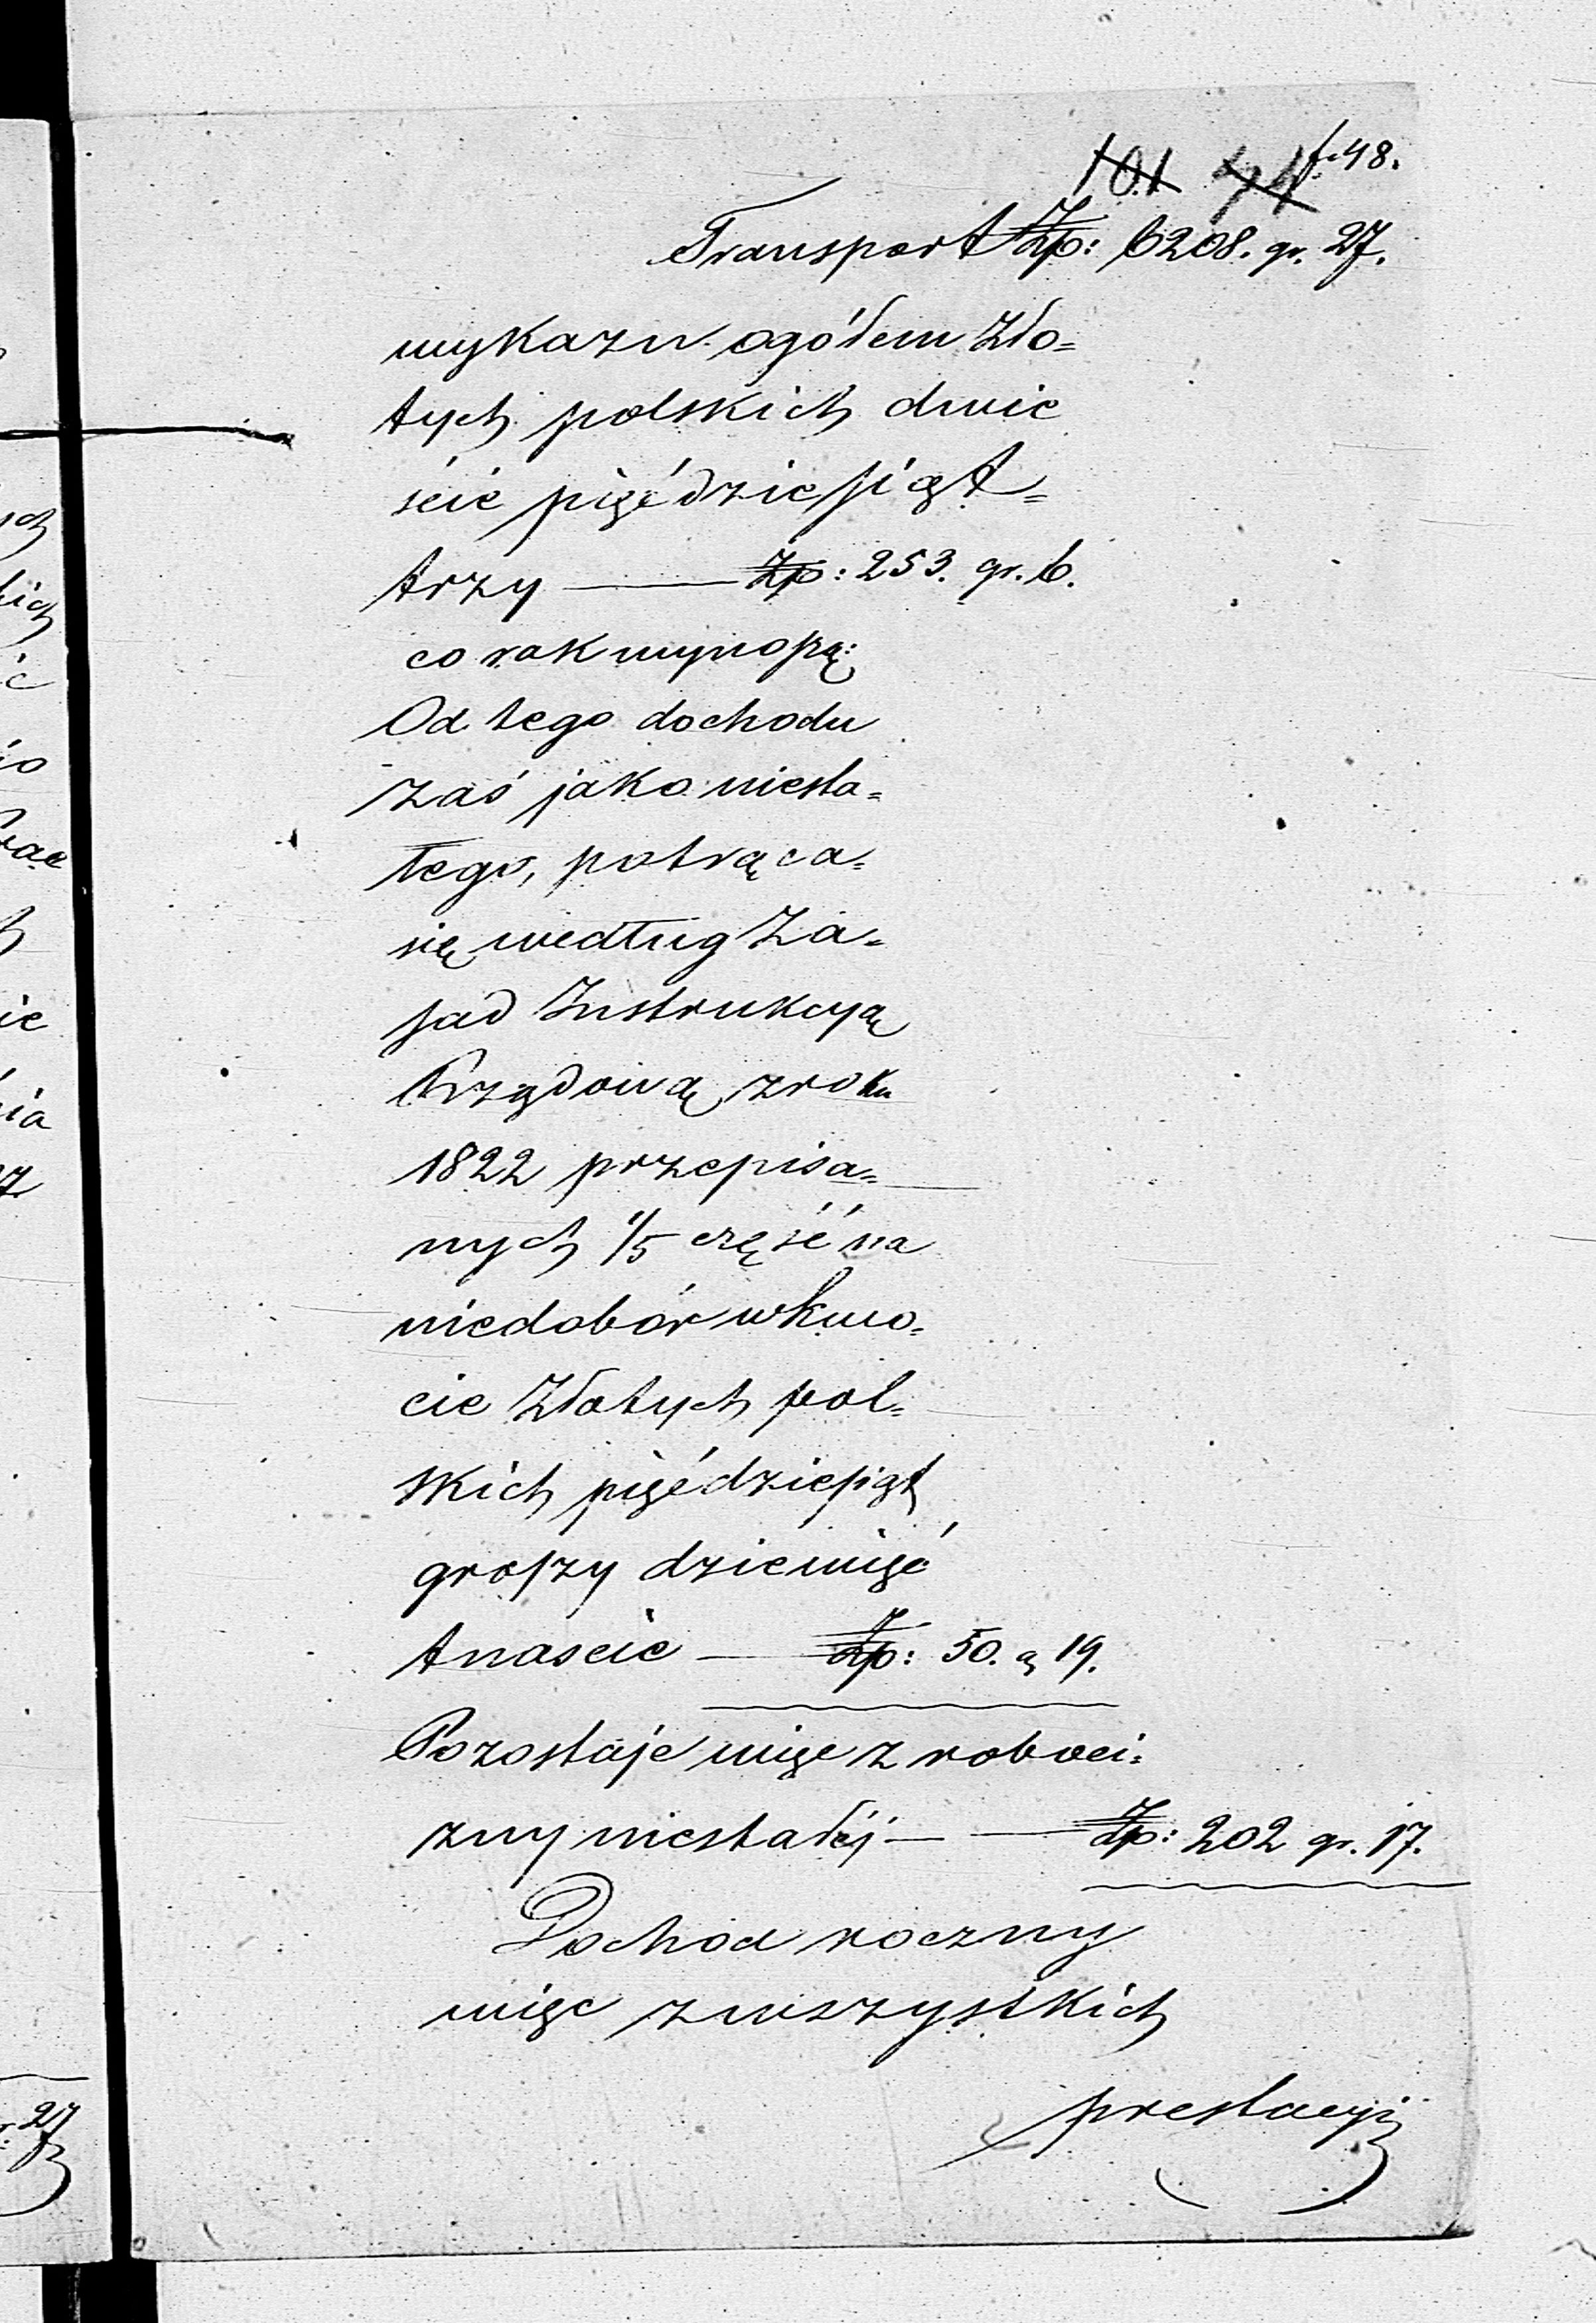 101 74 f. 48.
Transport Złp: 6208. gr. 27.
wykazu ogółem Zło=
tych polskich dwie
ście pięćdziesiąt=
trzy — Złp: 253. gr. 6.
co rok wynoszą:
Od tego dochodu
zaś jako niesta=
łego, potrąca=
się według Za=
sad Instrukcyą
Rządową z roku
1822 przepisa=
nych 1/5 część na
niedobór w kwo=
cie Złotych pol=
skich pięćdziesiąt
groszy dziewięć
tnaście — Złp: 50. g 19.
Pozostaje więc z roboci=
zny niestałéj — — Złp: 202 gr. 17.
Dochod roczny
więc z wszystkich
prestacyi